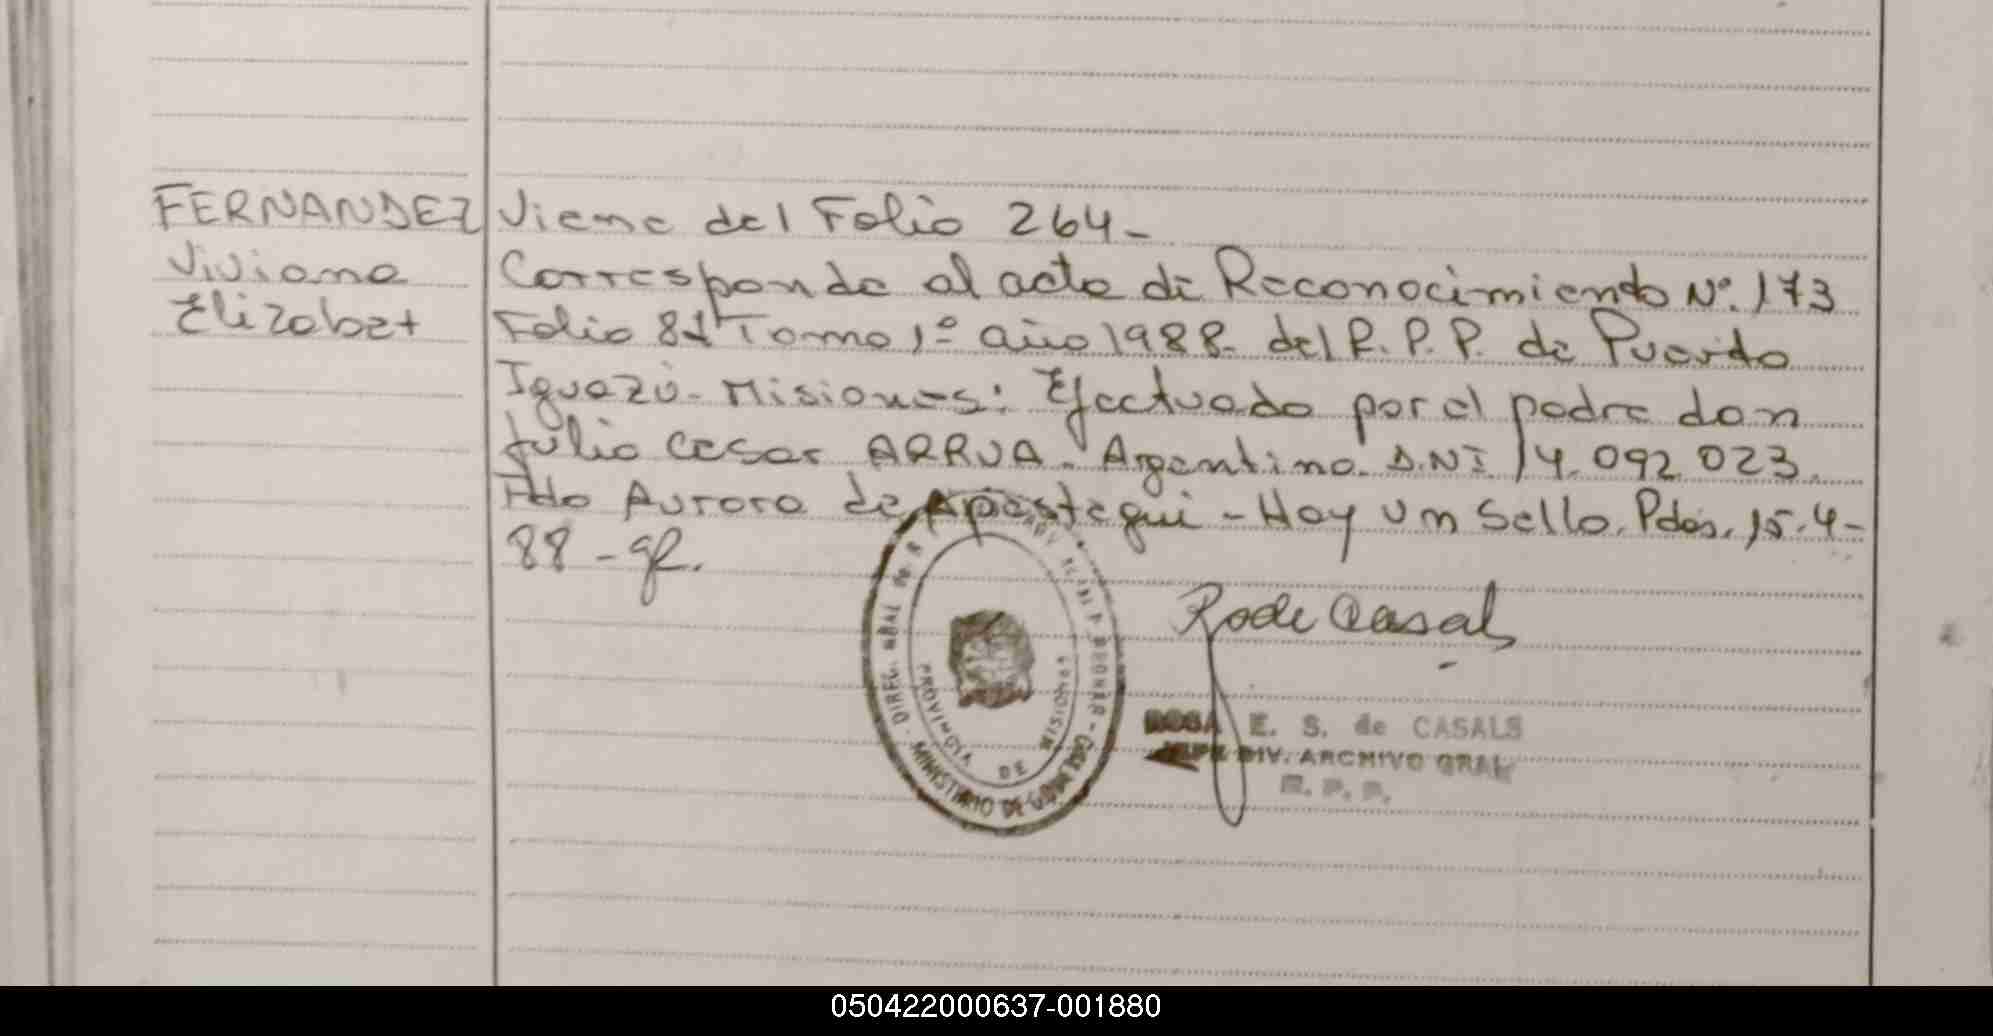 FERNANDEZ
Viviana
Elizabet
Viene del Folio 264-
Corresponde al acta de Reconocimiento Nº. 173
Folio 81 Tomo 1º año 1988- del R.P.P. de Puerto
Iguazú- Misiones: Efectuado por el padre don
Julio Cesar ARRUA- Argentino. D.NI 14.092.023.
Fdo Aurora de Apostegui - Hay un Sello. Pdas, 15-4-
88-
PROVINCIA DE MISIONES
MINISTERIO DE GOBIERNO
ROSA E. S. de CASALS
JEFE DIV. ARCHIVO GRAL
R. P. P.
050422000637-001880